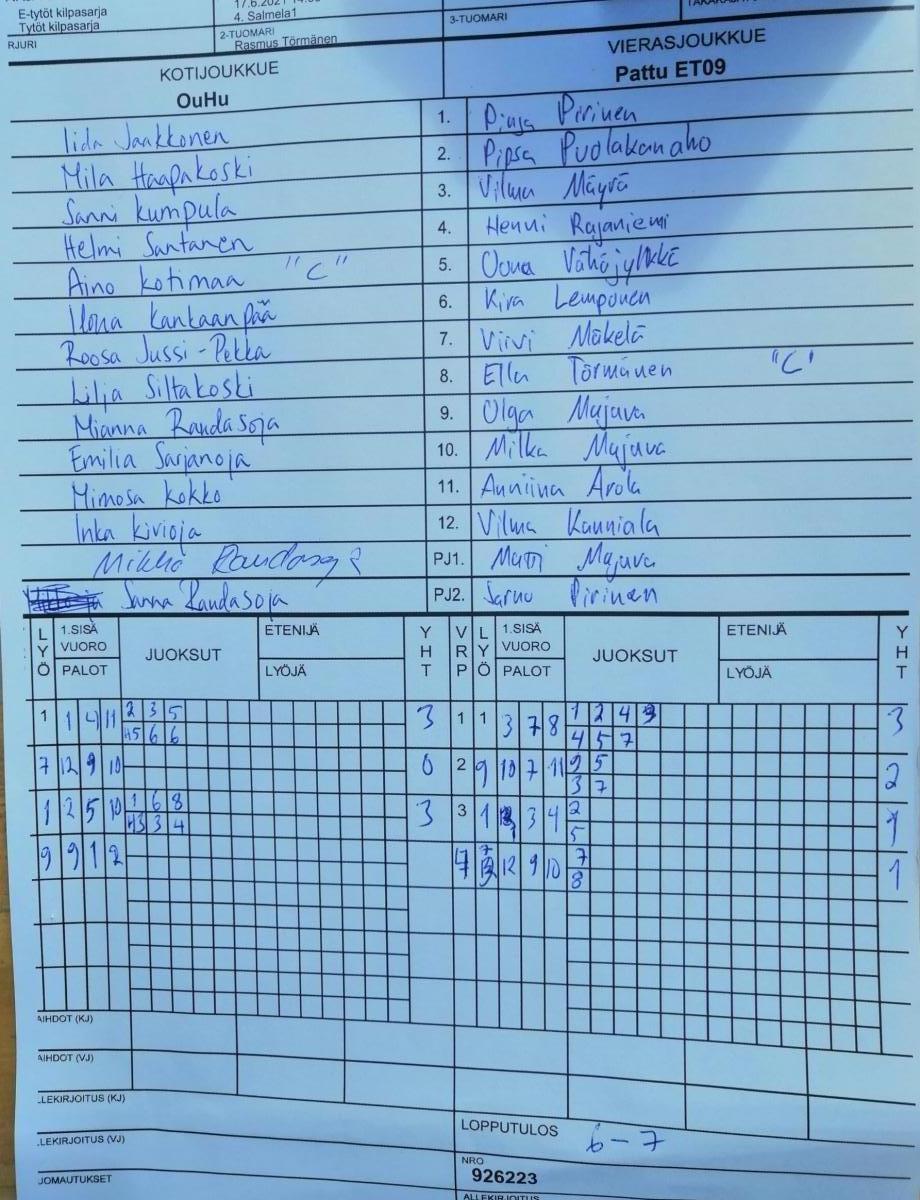 E-tytöt kilpasarja
Tytöt kilpasarja
17.6.2021
4. Salmela1
RJURI
2-TUOMARI
Rasmus Törmänen
3-TUOMARI
KOTIJOUKKUE
OuHu
VIERASJOUKKUE
Pattu ET09
Iida Jaakkonen 1. Pinja Pirinen
Mila Haapakoski 2. Pipsa Puolakanaho
Sanni Kumpula 3. Vilma Mäyrä
Helmi Santanen 4. Henni Rajaniemi
Aino Kotimaa "C" 5. Oona Vähäjylkkä
Ilona Kankaanpää 6. Kira Lemponen
Roosa Jussi-Pekka 7. Viivi Mäkelä
Lilja Siltakoski 8. Ella Törmänen "C"
Mianna Raudasoja 9. Olga Majava
Emilia Sarjanoja 10. Milka Majava
Mimosa Kokko 11. Anniina Arola
Inka Kivioja 12. Vilma Kanniala
Mikko Raudasoja PJ1. Matti Majava
Sanna Raudasoja PJ2. Sarno Pirinen
LYÖ 1.SISÄ VUORO PALOT JUOKSUT ETENIJÄ LYÖJÄ YHT VRP LYÖ 1.SISÄ VUORO PALOT JUOKSUT ETENIJÄ LYÖJÄ YHT
1 1 4 11 2 3 5 3 1 1 3 7 8 1 2 4 3
6 6 4 5 7
7 12 9 10 0 2 9 10 7 11 9 5 2
3 7
1 2 5 10 1 6 8 3 3 1 3 4 2 1
3 4 5
9 9 1 2 12 9 10 7 1
8
AIHDOT (KJ)
AIHDOT (VJ)
LEKIRJOITUS (KJ)
LEKIRJOITUS (VJ)
LOPPUTULOS 6-7
JOMAUTUKSET
NRO
926223
ALLEKIRJOITUS